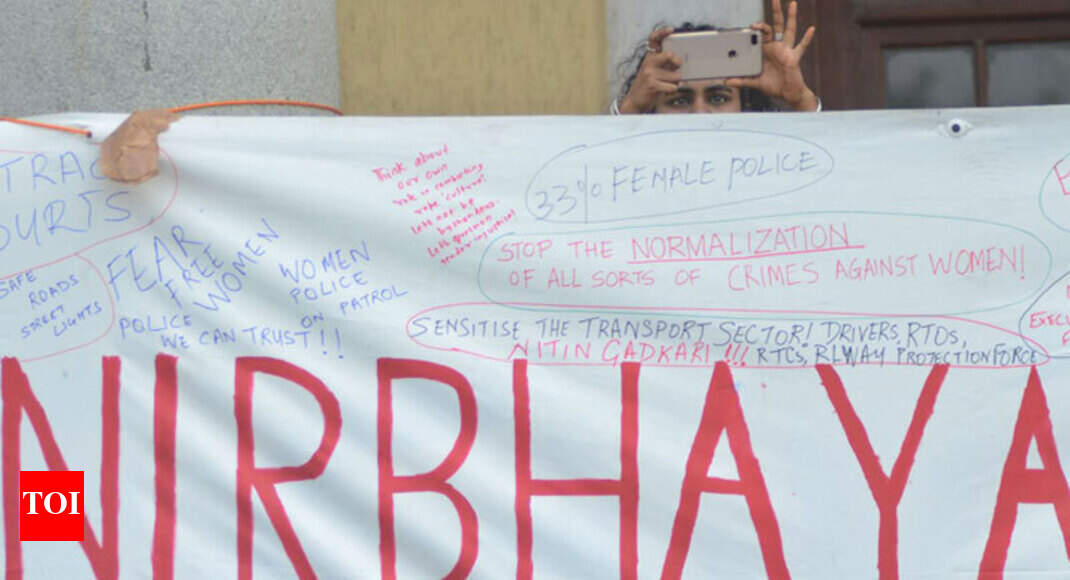 TRAC
OURTS
SAFE
ROADS
STREET
LIGHTS
FEAR
FREE
WOMEN
POLICE
WE CAN TRUST!!
WOMEN
POLICE
ON PATROL
Think about
our own
role in combating
rape 'culture'.
Lets not be
bystanders.
Lets question
33% FEMALE POLICE
STOP THE NORMALIZATION
OF ALL SORTS OF CRIMES AGAINST WOMEN!
SENSITISE THE TRANSPORT SECTOR! DRIVERS, RTOs,
NITIN GADKARI!!! RTCs, RLWAY PROTECTION FORCE
EXECU
NIRBHAYA
TOI